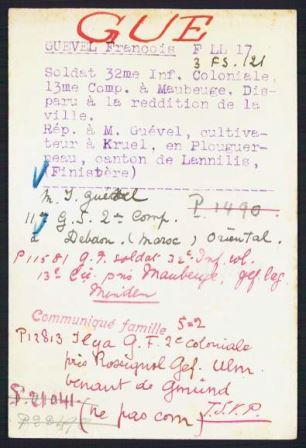 GUE
GUEVEL François F LL 17
3 FS. /21
Soldat 32me Inf. Coloniale,
13me Comp. à Maubeuge. Dis-
paru à la reddition de la
ville.
Rép. à M. Guével, cultiva-
teur à Kruel, en Plouguer-
neau, canton de Lannilis,
(Finistère)
M. J. Guével
11 G. S. 2me Comp. P 1490.
à Debdou (Maroc) Oriental.
P 11581 G. F. soldat 32e Inf. col.
13e Cie pris Maubeuge, gef. lag.
Minden
Communiqué famille 5=2
P 12813 Il y a G. F. 2e coloniale
pris Rossignol Gef. Ulm
venant de Gmünd
P. 21041 (ne pas com) J.J.K.P.